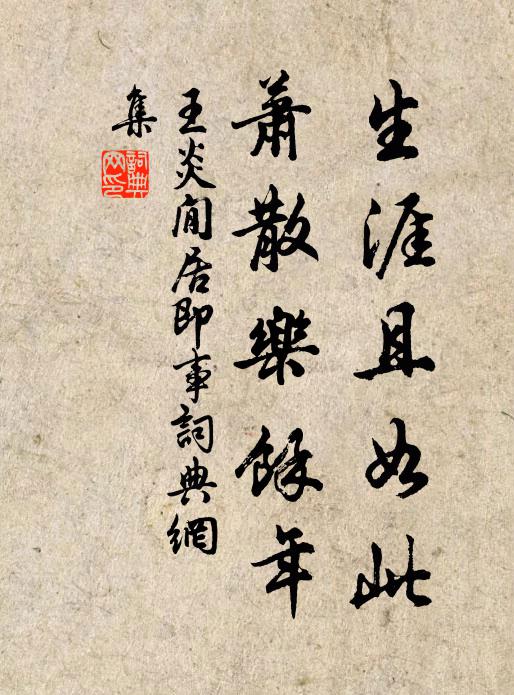 生涯且如此
蕭散樂餘年
王炎閒居即事詞典網
集
詞典
网印